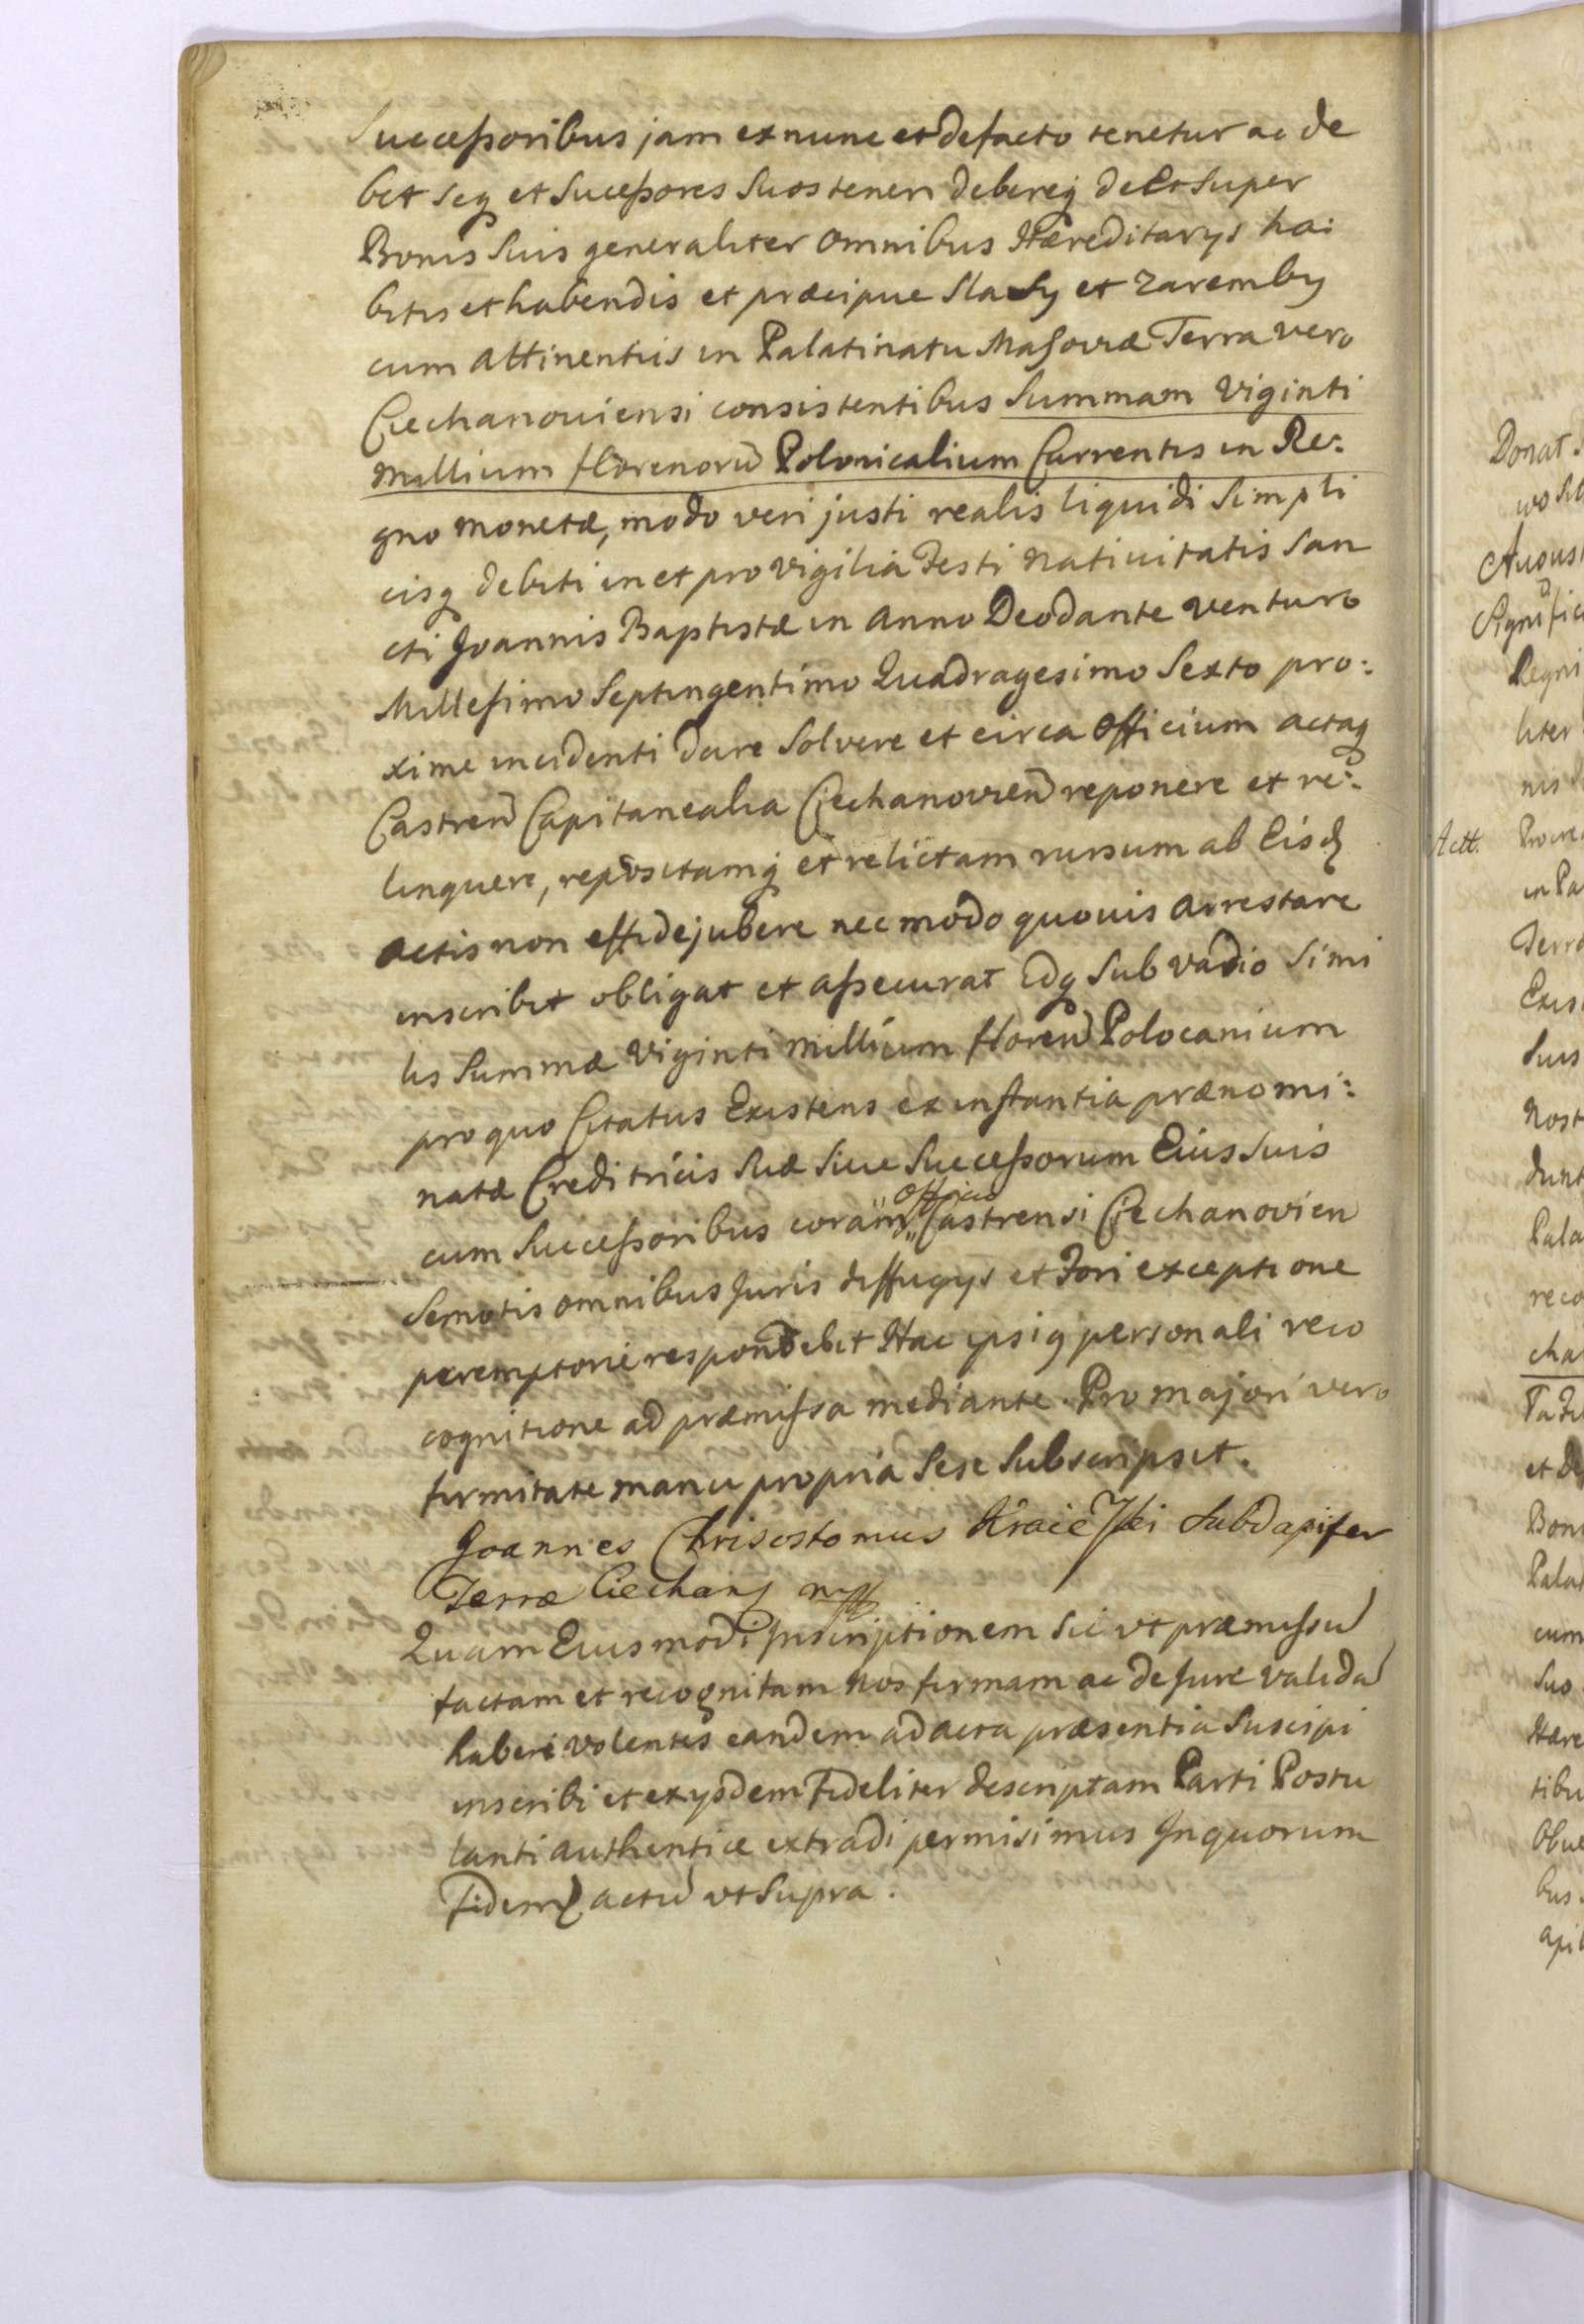 Successoribus jam ex nunc et de facto tenetur ac de
bet seq et Sucessores Suos teneri debereq de Et Super
Bonis Suis generaliter omnibus Hæreditarys ha:
bitis et habendis et præcipue Slasy et Zaremby
cum attinentiis in Palatinatu Masoviæ Terra vero
Ciechanoviensi consistentibus Summam Viginti
Millium florenorum Polonicalium Currentis in Re:
gno Monetæ, modo veri justi realis liquidi Simpli
cisq debiti in et pro Vigilia Festi Nativitatis San
cti Joannis Baptistæ in Anno Deo dante venturo
Millesimo Septingentimo Quadragesimo Sexto pro:
xime incidenti dare Solvere et circa Officium actaq
Castren Capitanealia Ciechanovien reponere et re:
linquere, repositamq et relictam rursum ab Eisd
actis non effidejubere nec modo quovis arrestare
inscribit obligat et assecurat Idq Sub vadio Simi
lis Summæ Viginti Millium floren Polocanium
pro quo Citatus Existens ex instantia prænomi:
natæ Creditricis Suæ Sive Successorum Eius Suis
cum Successoribus coram Officio Castrensi Ciechanovien
Semotis omnibus Juris diffugys et Fori exceptione
peremptorie respondebit Hac ipsiq personali reco
cognitione ad præmissa mediante. Pro majori vero
firmitate manu propria Sese Subscripsit.
Joannes Chrisostomus Kraiewski Subdapifer
Terræ Ciechan mpp
Quam Eiusmodi Inscriptionem Sic ut præmissu
factam et recognitam Nos firmam ac de Jure valida
haberi volentes eandem ad acta præsentia Suscipi
inscribi et ex ysdem Fideliter descriptam Parti Postu
lanti authentice extradi permisimus In quorum
Fidem actu ut Supra.
Donat.
Actt.